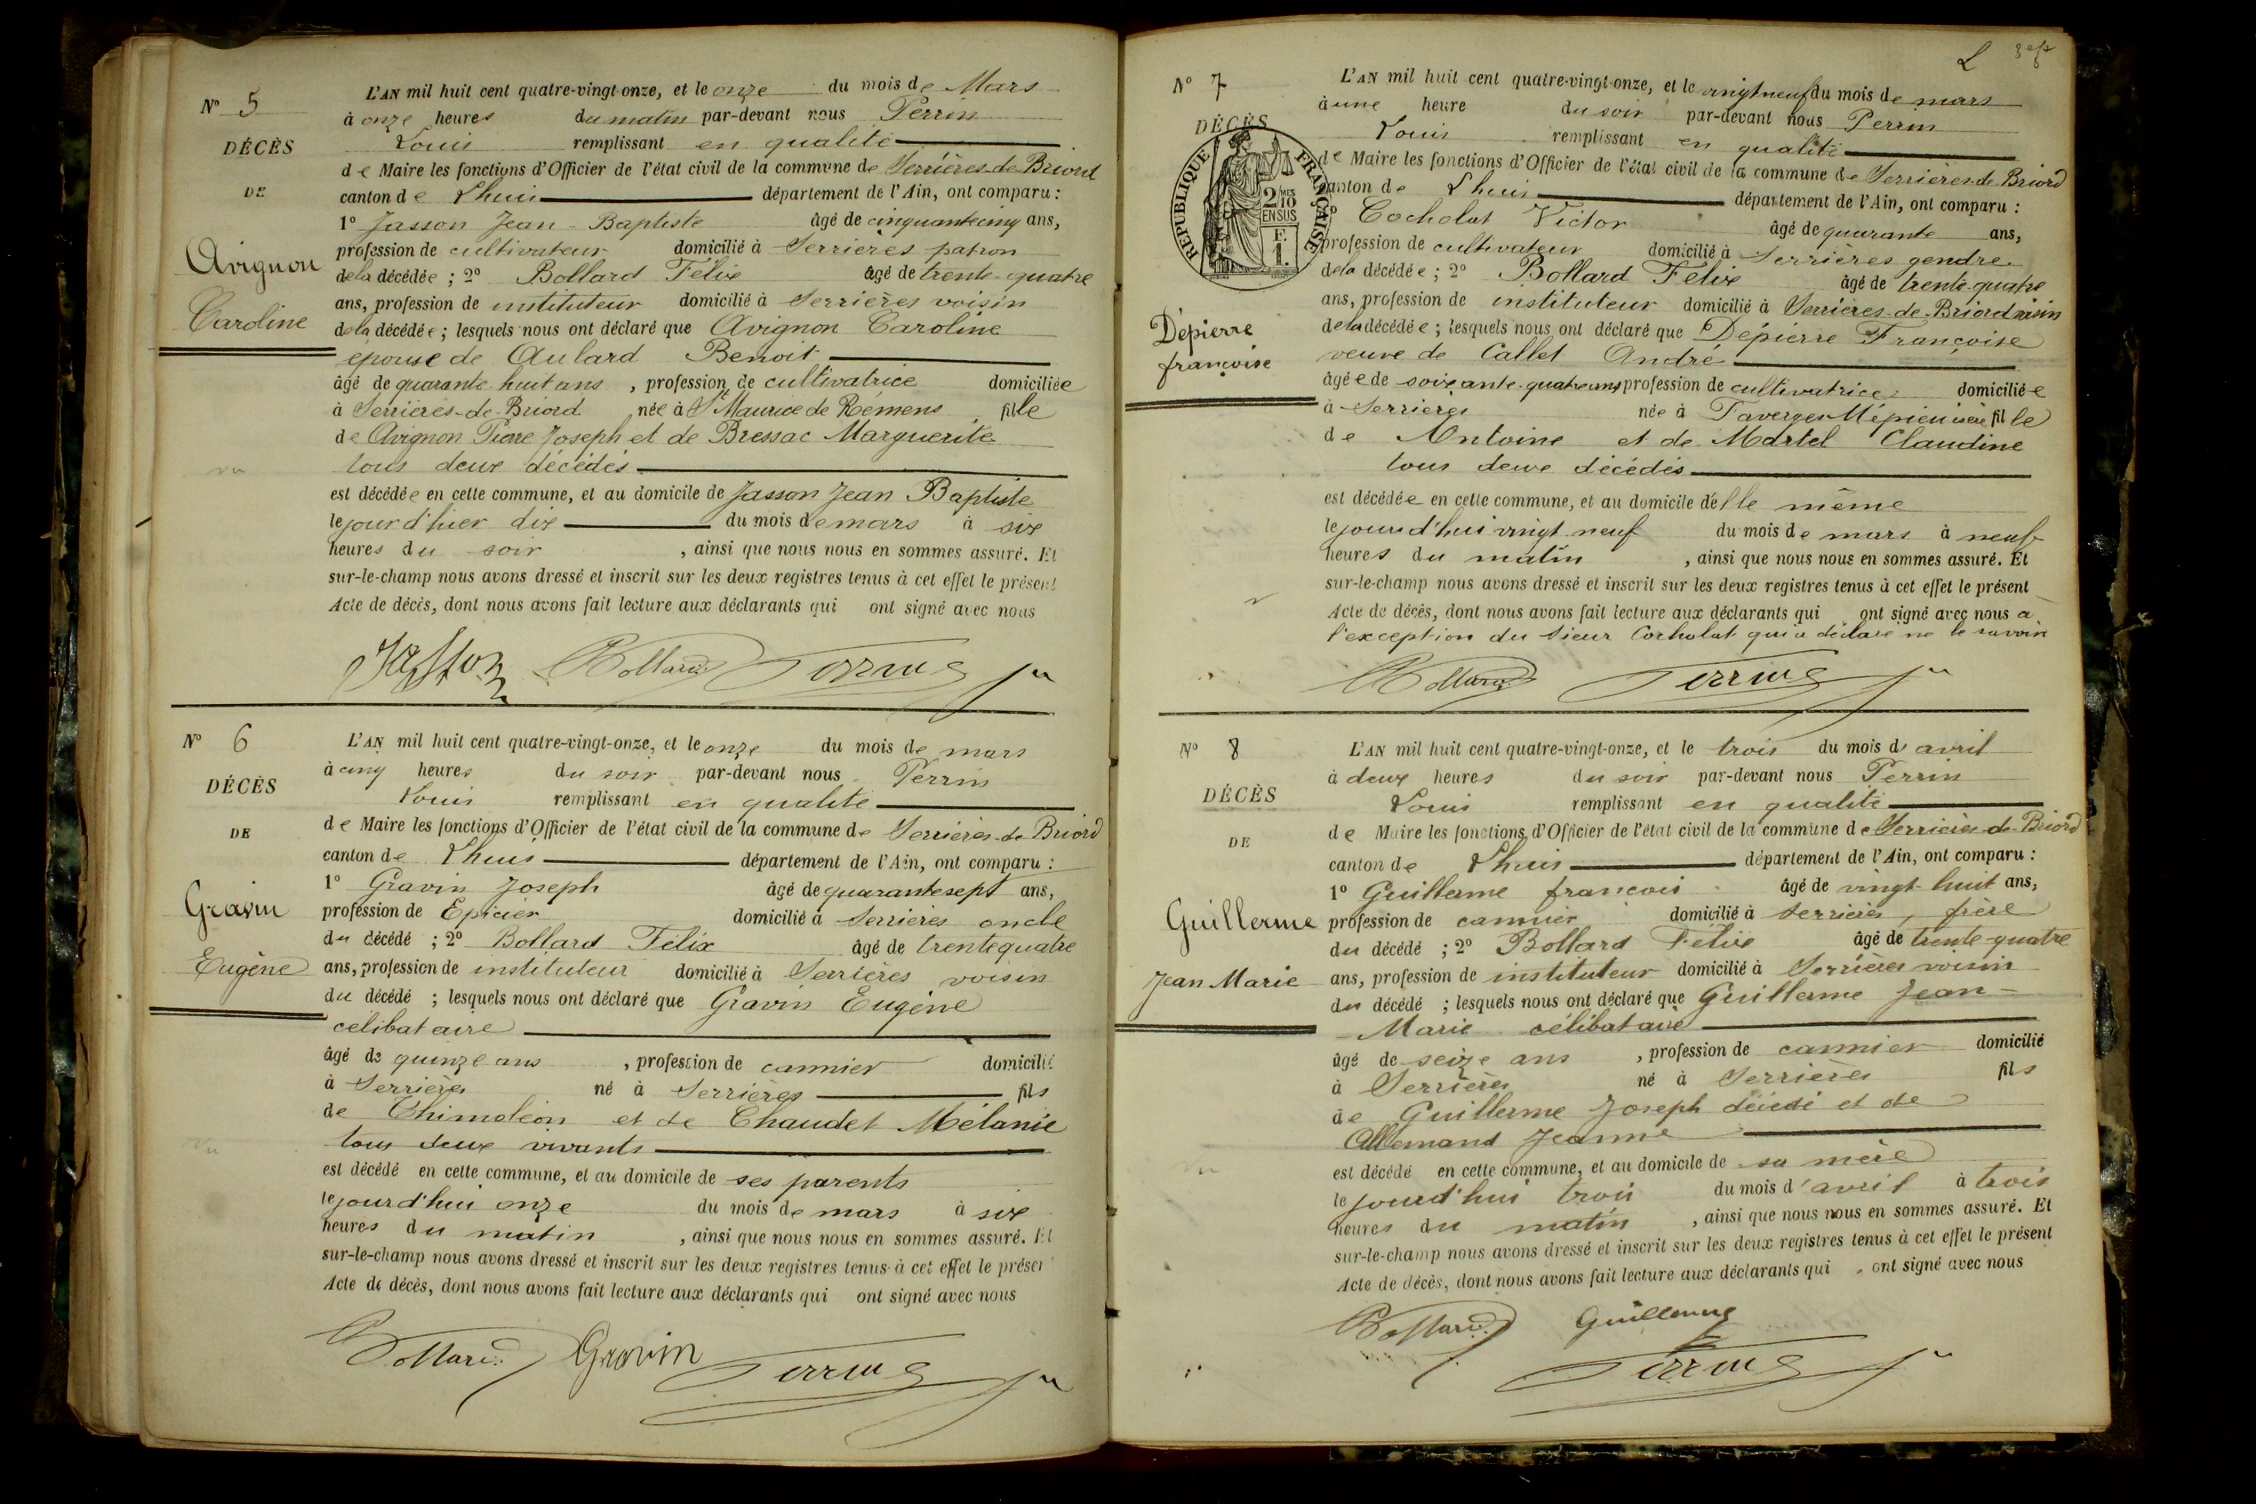 N° 5
DÉCÈS
DE
Avignon
Caroline
L'AN mil huit cent quatre-vingt-onze, et le onze du mois de Mars
à onze heures du matin par-devant nous Perrin
Louis remplissant en qualité
de Maire les fonctions d'Officier de l'état civil de la commune de Serrières-de-Briord
canton de Lhuis département de l'Ain, ont comparu :
1° Jasson Jean-Baptiste âgé de cinquante cinq ans,
profession de cultivateur domicilié à Serrières patron
de la décédée ; 2° Bollard Félix âgé de trente-quatre
ans, profession de instituteur domicilié à Serrières voisin
de la décédée ; lesquels nous ont déclaré que Avignon Caroline
épouse de Aulard Benoit
âgé de quarante huit ans, profession de cultivatrice domiciliée
à Serrières-de-Briord née à St Maurice de Rémens fille
de Avignon Pierre Joseph et de Bressac Marguerite
tous deux décédés
est décédée en cette commune, et au domicile de Jasson Jean Baptiste
le jour d'hier dix du mois de mars à six
heures du soir, ainsi que nous nous en sommes assuré. Et
sur-le-champ nous avons dressé et inscrit sur les deux registres tenus à cet effet le présent
Acte de décès, dont nous avons fait lecture aux déclarants qui ont signé avec nous
Jasson Bollard Perrin
N° 6
DÉCÈS
DE
Gravin
Eugène
L'AN mil huit cent quatre-vingt-onze, et le onze du mois de mars
à cinq heures du soir par-devant nous Perrin
Louis remplissant en qualité
de Maire les fonctions d'Officier de l'état civil de la commune de Serrières-de-Briord
canton de Lhuis département de l'Ain, ont comparu :
1° Gravin Joseph âgé de quarante sept ans,
profession de Epicier domicilié à Serrières oncle
du décédé ; 2° Bollard Félix âgé de trente quatre
ans, profession de instituteur domicilié à Serrières voisin
du décédé ; lesquels nous ont déclaré que Gravin Eugène
célibataire
âgé de quinze ans, profession de cannier domicilié
à Serrières né à Serrières fils
de Thimoléon et de Chaudet Mélanie
tous deux vivants
est décédé en cette commune, et au domicile de ses parents
le jourd'hui onze du mois de mars à six
heures du matin, ainsi que nous nous en sommes assuré. Et
sur-le-champ nous avons dressé et inscrit sur les deux registres tenus à cet effet le présent
Acte de décès, dont nous avons fait lecture aux déclarants qui ont signé avec nous
Bollard Gravin Perrin
N° 7
DÉCÈS
RÉPUBLIQUE FRANÇAISE
2/10 MES EN SUS
F. 1.
Dépierre
françoise
L'AN mil huit cent quatre-vingt-onze, et le vingt neuf du mois de mars
à une heure du soir par-devant nous Perrin
Louis remplissant en qualité
de Maire les fonctions d'Officier de l'état civil de la commune de Serrières-de-Briord
canton de Lhuis département de l'Ain, ont comparu :
1° Cocholat Victor âgé de quarante ans,
profession de cultivateur domicilié à Serrières gendre
de la décédée ; 2° Bollard Félix âgé de trente-quatre
ans, profession de instituteur domicilié à Serrières-de-Briord voisin
de la décédée ; lesquels nous ont déclaré que Dépierre Françoise
veuve de Callet André
âgée de soixante-quatre ans profession de cultivatrice domiciliée
à Serrières née à Mépieu isère fille
de Antoine et de Martel Claudine
tous deux décédés
est décédée en cette commune, et au domicile d'elle même
le jourd'hui vingt neuf du mois de mars à neuf
heures du matin, ainsi que nous nous en sommes assuré. Et
sur-le-champ nous avons dressé et inscrit sur les deux registres tenus à cet effet le présent
Acte de décès, dont nous avons fait lecture aux déclarants qui ont signé avec nous a
l'exception du sieur Cocholat qui a déclaré ne le savoir
Bollard Perrin
N° 8
DÉCÈS
DE
Guillerme
Jean Marie
L'AN mil huit cent quatre-vingt-onze, et le trois du mois d'avril
à deux heures du soir par-devant nous Perrin
Louis remplissant en qualité
de Maire les fonctions d'Officier de l'état civil de la commune de Serrières-de-Briord
canton de Lhuis département de l'Ain, ont comparu :
1° Guillerme françois âgé de vingt-huit ans,
profession de cannier domicilié à Serrières, frère
du décédé ; 2° Bollard Félix âgé de trente-quatre
ans, profession de instituteur domicilié à Serrières voisin
du décédé ; lesquels nous ont déclaré que Guillerme Jean-
Marie célibataire
âgé de seize ans, profession de cannier domicilié
à Serrières né à Serrières fils
de Guillerme Joseph décédé et de
Allemand Jeanne
est décédé en cette commune, et au domicile de sa mère
le jourd'hui trois du mois d'avril à trois
heures du matin, ainsi que nous nous en sommes assuré. Et
sur-le-champ nous avons dressé et inscrit sur les deux registres tenus à cet effet le présent
Acte de décès, dont nous avons fait lecture aux déclarants qui ont signé avec nous
Bollard Guillerme
Perrin